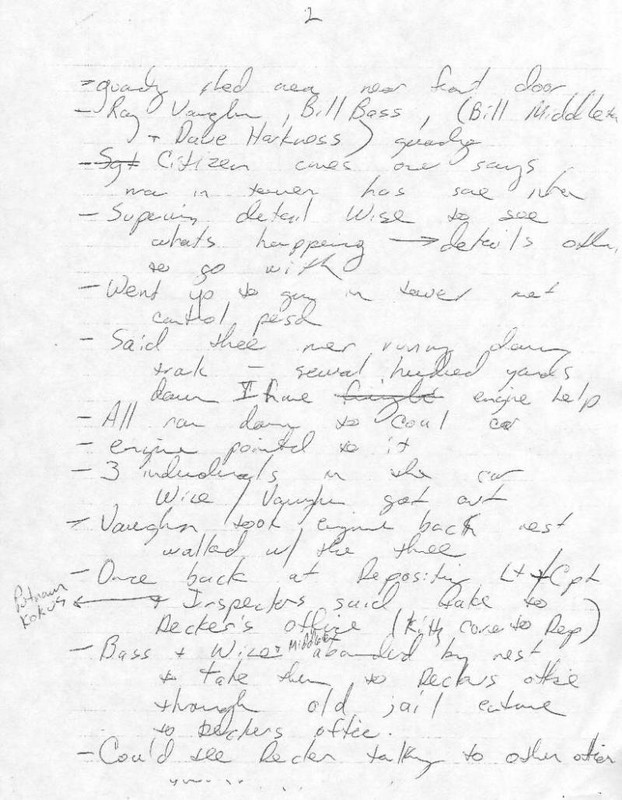 2
- guardy shed area near front door
- Ray Vaughn, Bill Bass, (Bill Middleton
+ Dave Harkness) guardy
- Sgt Citizen comes over says
man in tower has some
- Superiors detail Wise to see
whats happening → details other
to go with
- Went up to guy in tower not
control
- Said three men running down
track - several hundred yards
down I have freight engine help
- All ran down to coal car
- engine pointed to it
- 3 individuals in the car
Wise / Vaughn got out
- Vaughn took engine back rest
walked w/ the three
- Once back at Depository Lt + Cpt
Putnam
Kokus
+ Inspectors said take to
Decker's office (Kitty come to Dep)
- Bass + Wise + Middleton by rest
to take them to Deckers office
through old jail entrance
to Deckers office.
- Could see Decker talking to other officer